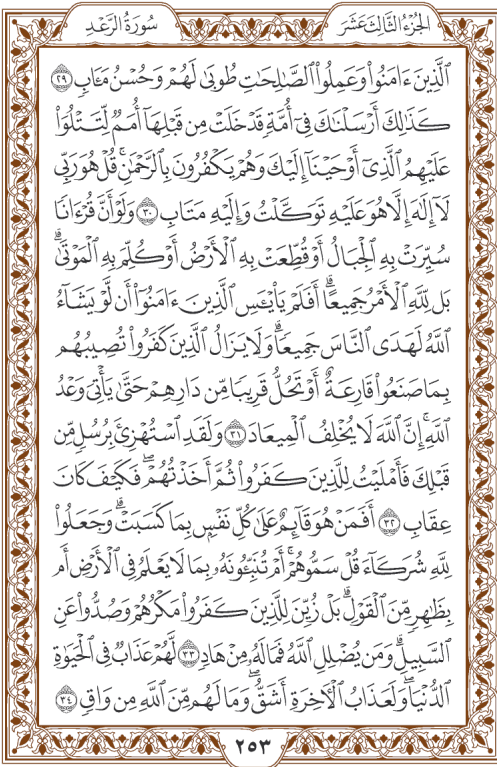 الجزء الثالث عشر
سورة الرعد
ٱلَّذِينَ ءَامَنُواْ وَعَمِلُواْ ٱلصَّٰلِحَٰتِ طُوبَىٰ لَهُمۡ وَحُسۡنُ مَـَٔابٖ ٢٩
كَذَٰلِكَ أَرۡسَلۡنَٰكَ فِيٓ أُمَّةٖ قَدۡ خَلَتۡ مِن قَبۡلِهَآ أُمَمٞ لِّتَتۡلُوَاْ
عَلَيۡهِمُ ٱلَّذِيٓ أَوۡحَيۡنَآ إِلَيۡكَ وَهُمۡ يَكۡفُرُونَ بِٱلرَّحۡمَٰنِۚ قُلۡ هُوَ رَبِّي
لَآ إِلَٰهَ إِلَّا هُوَ عَلَيۡهِ تَوَكَّلۡتُ وَإِلَيۡهِ مَتَابِ ٣٠ وَلَوۡ أَنَّ قُرۡءَانٗا
سُيِّرَتۡ بِهِ ٱلۡجِبَالُ أَوۡ قُطِّعَتۡ بِهِ ٱلۡأَرۡضُ أَوۡ كُلِّمَ بِهِ ٱلۡمَوۡتَىٰۗ
بَل لِّلَّهِ ٱلۡأَمۡرُ جَمِيعًاۗ أَفَلَمۡ يَاْيۡـَٔسِ ٱلَّذِينَ ءَامَنُوٓاْ أَن لَّوۡ يَشَآءُ
ٱللَّهُ لَهَدَى ٱلنَّاسَ جَمِيعٗاۗ وَلَا يَزَالُ ٱلَّذِينَ كَفَرُواْ تُصِيبُهُم
بِمَا صَنَعُواْ قَارِعَةٌ أَوۡ تَحُلُّ قَرِيبٗا مِّن دَارِهِمۡ حَتَّىٰ يَأۡتِيَ وَعۡدُ
ٱللَّهِۚ إِنَّ ٱللَّهَ لَا يُخۡلِفُ ٱلۡمِيعَادَ ٣١ وَلَقَدِ ٱسۡتُهۡزِئَ بِرُسُلٖ مِّن
قَبۡلِكَ فَأَمۡلَيۡتُ لِلَّذِينَ كَفَرُواْ ثُمَّ أَخَذۡتُهُمۡۖ فَكَيۡفَ كَانَ
عِقَابِ ٣٢ أَفَمَنۡ هُوَ قَآئِمٌ عَلَىٰ كُلِّ نَفۡسِۭ بِمَا كَسَبَتۡۗ وَجَعَلُواْ
لِلَّهِ شُرَكَآءَ قُلۡ سَمُّوهُمۡۚ أَمۡ تُنَبِّـُٔونَهُۥ بِمَا لَا يَعۡلَمُ فِي ٱلۡأَرۡضِ أَم
بِظَٰهِرٖ مِّنَ ٱلۡقَوۡلِۗ بَلۡ زُيِّنَ لِلَّذِينَ كَفَرُواْ مَكۡرُهُمۡ وَصُدُّواْ عَنِ
ٱلسَّبِيلِۗ وَمَن يُضۡلِلِ ٱللَّهُ فَمَا لَهُۥ مِنۡ هَادٖ ٣٣ لَّهُمۡ عَذَابٞ فِي ٱلۡحَيَوٰةِ
ٱلدُّنۡيَاۖ وَلَعَذَابُ ٱلۡأٓخِرَةِ أَشَقُّۖ وَمَا لَهُم مِّنَ ٱللَّهِ مِن وَاقٖ ٣٤
٢٥٣